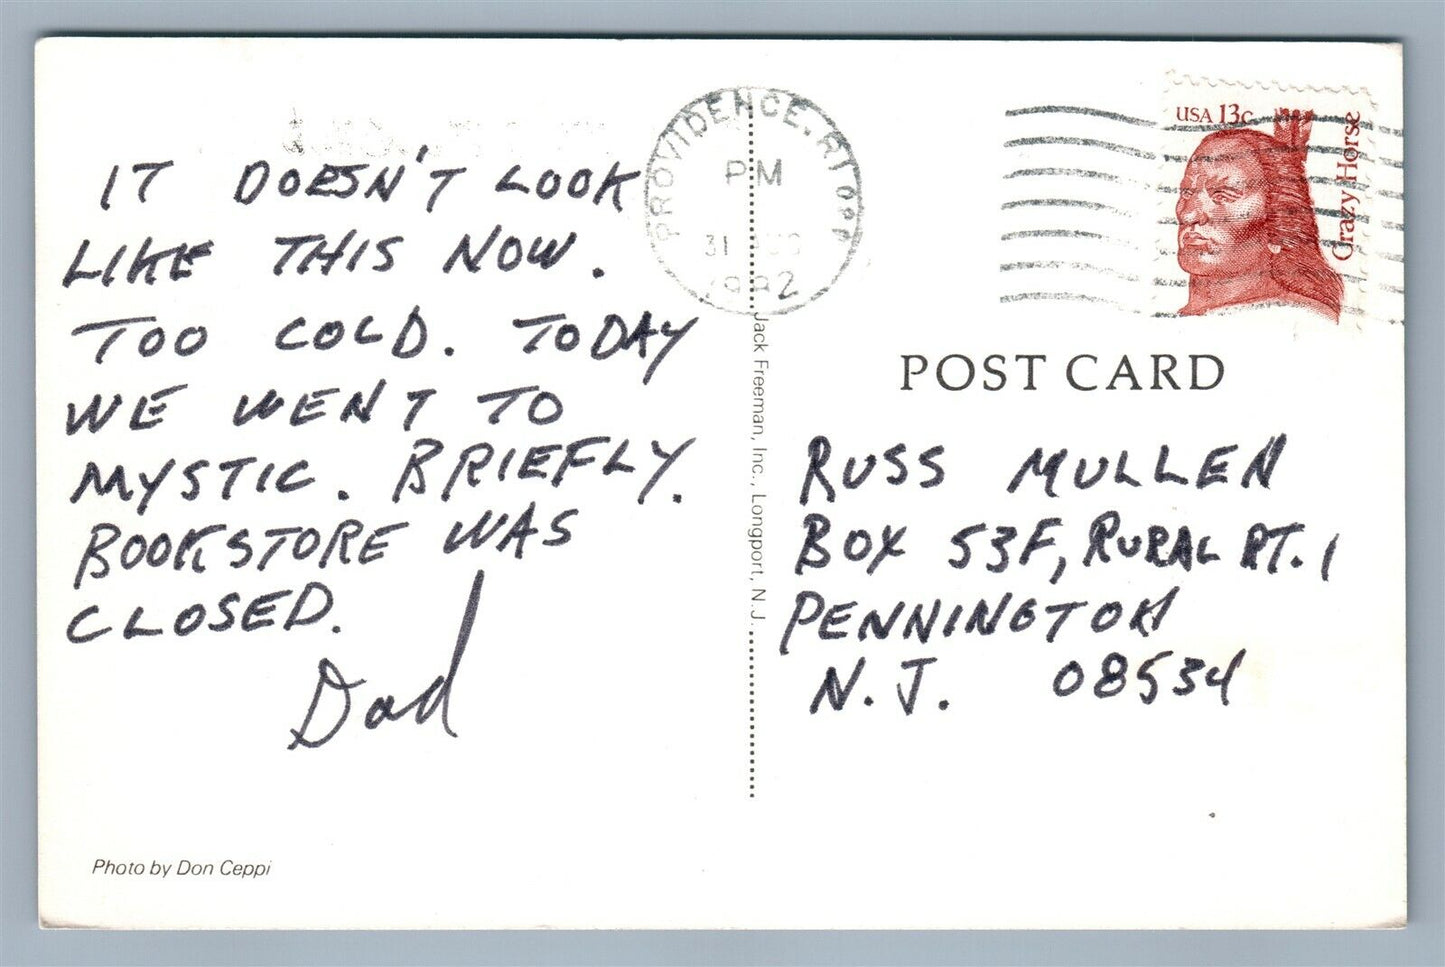 IT DOESN'T LOOK
LIKE THIS NOW.
TOO COLD. TODAY
WE WENT TO
MYSTIC. BRIEFLY.
BOOKSTORE WAS
CLOSED.
Dad
Photo by Don Ceppi
Jack Freeman, Inc., Longport, N.J.
PROVIDENCE, RI
PM
31
1982
USA 13c
Crazy Horse
POST CARD
RUSS MULLEN
BOX 53F, RURAL RT. 1
PENNINGTON
N.J. 08534